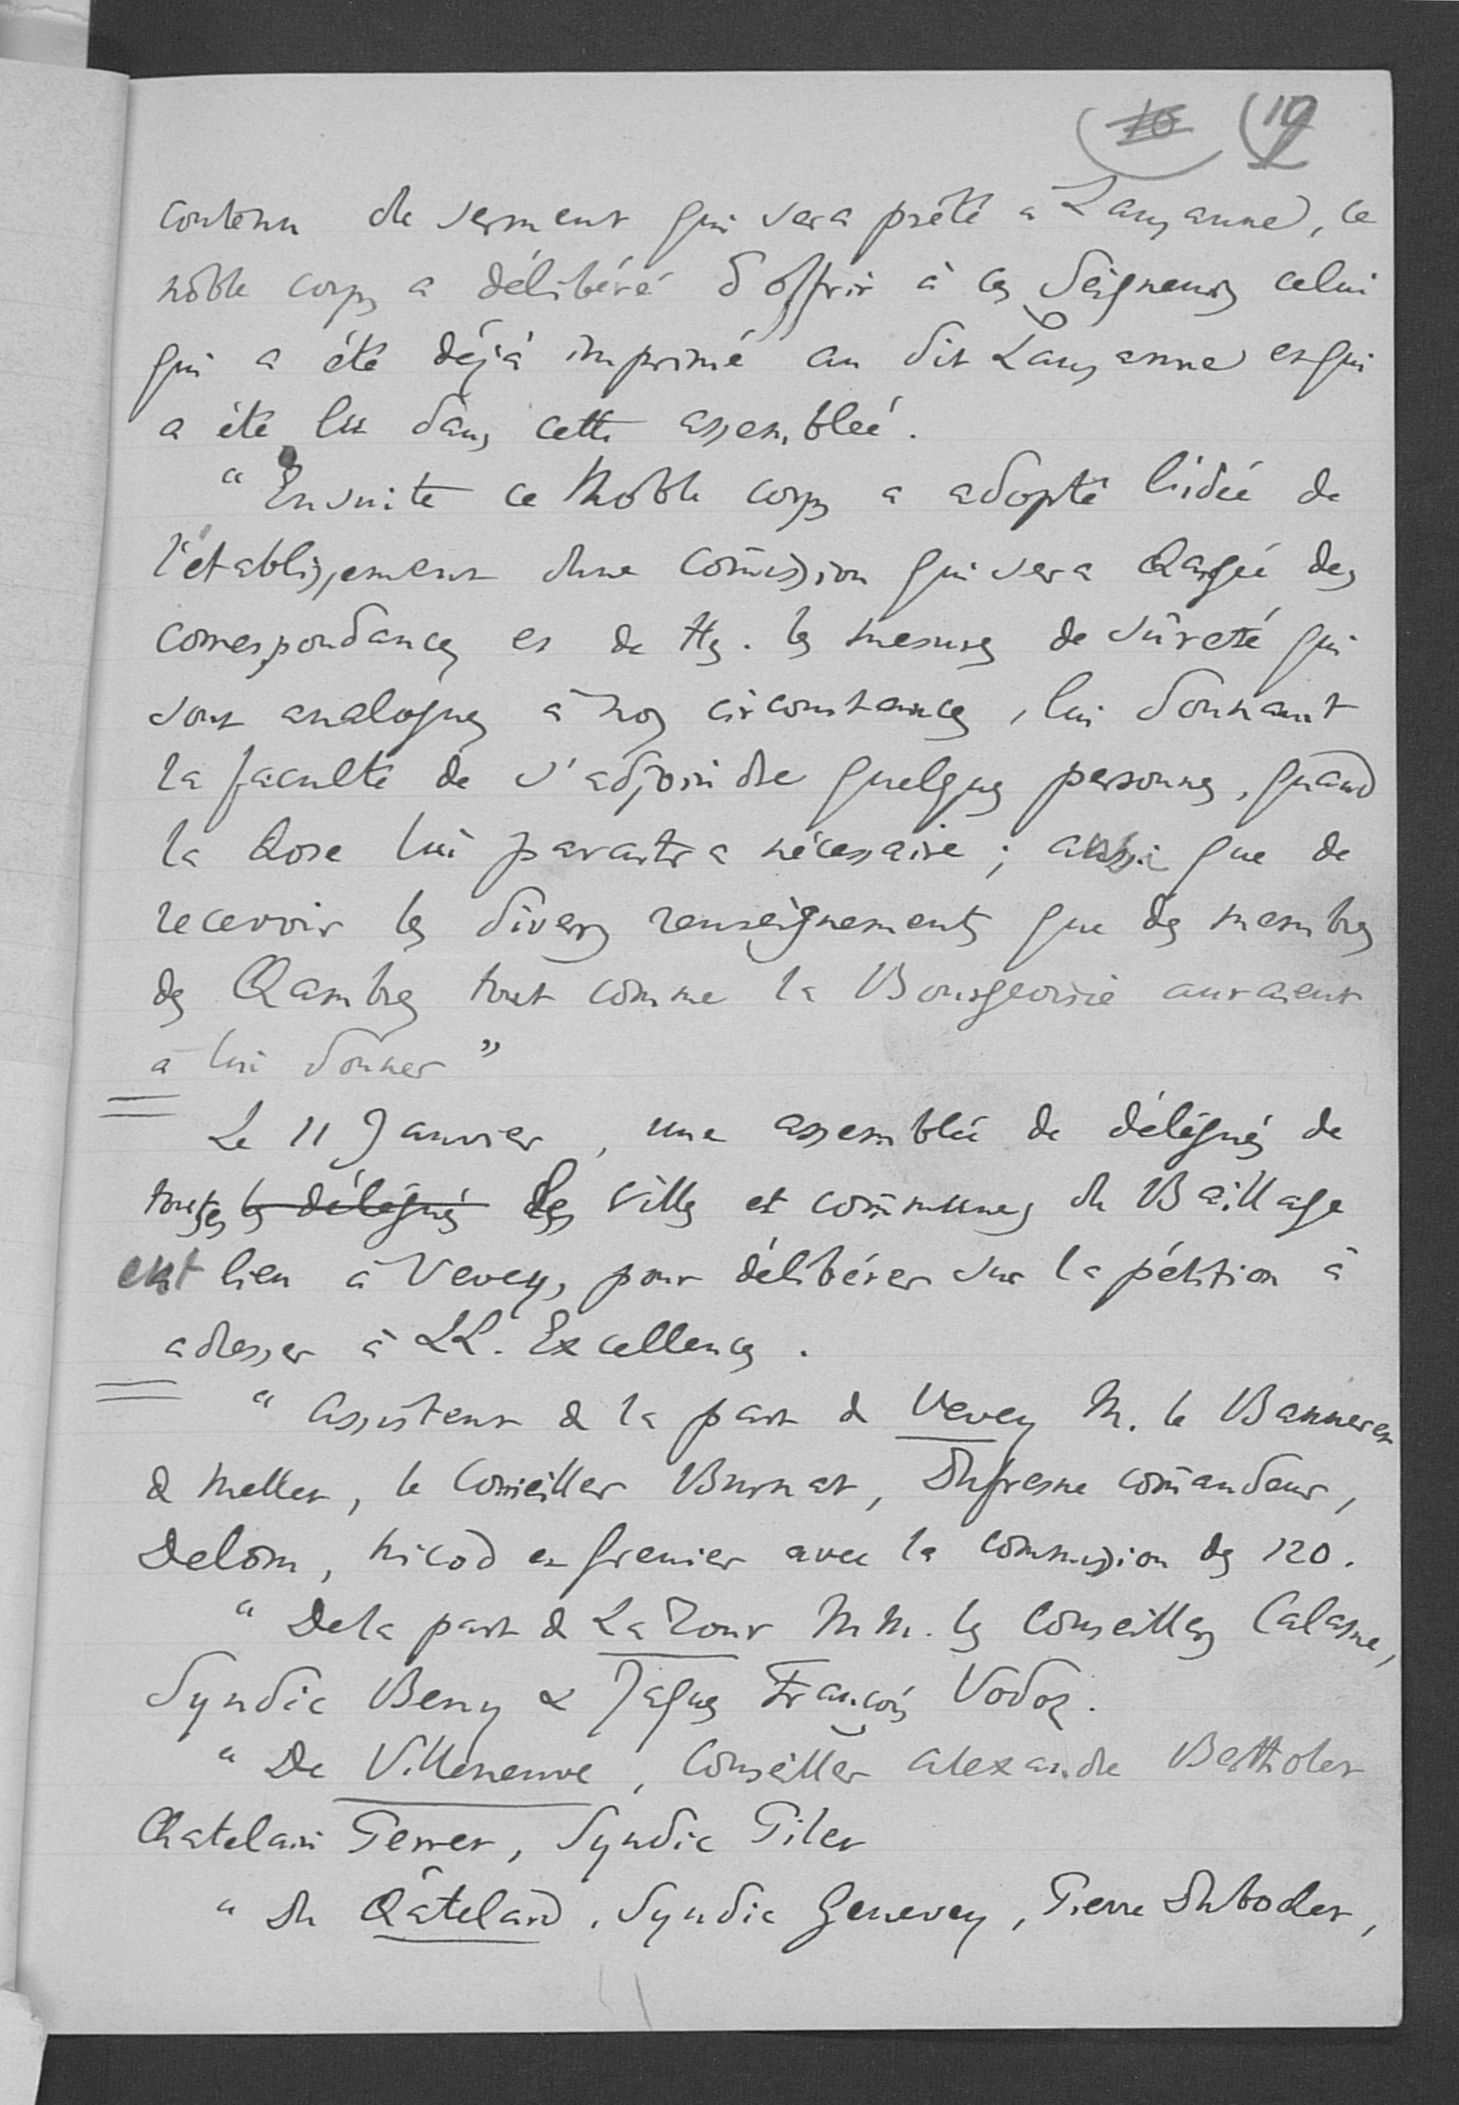 16 19
contenu du serment qui sera prêté a Lausanne, ce
noble corps a délibéré d'offrir à ces Seigneurs celui
qui a été déjà imprimé au dit Lausanne et qui
a été lu dans cette assemblée.
“Ensuite ce Noble corps a adopté l'idée de
l'établissement d'une com̄ission qui sera chargée des
correspondances et de les mesures de sûreté qui
sont analogues à nos circonstances, lui donnant
la faculté de s'adjoindre quelques personnes, quand
la chose lui paraitra nécessaire; aussi que de
recevoir les divers renseignements que des membres
des Chambres tout comme la Bourgeoisie auraient
à lui donner”
Le 11 Janvier, une assemblée de délégués de
toutes les délégués les villes et com̄munes du Baillage
eut lieu à Vevey, pour délibérer sur la pétition à
adresser à LL. Excellences.
“Assistent de la part de Vevey M. le Banneret
de Mellet, le Conseiller Burnat, Dufresne com̄andeur,
Delom, Nicod et Grenier avec la commission des 120.
“De la part de La Tour MM. les Conseillers
Syndic Beny & Jaques François Vodoz.
“De Villeneuve, Conseiller Alexandre Bertholet
Chatelain Perret, Syndic Pilet
“Du Châtelard. Syndic Genevey, Pierre Dubochet,